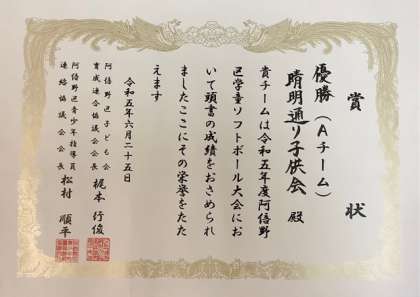 賞状
優勝（Aチーム）
晴明通り子供会 殿
貴チームは令和五年度阿倍野
区学童ソフトボール大会にお
いて頭書の成績をおさめられ
ましたここにその栄誉をたた
えます
令和五年六月二十五日
阿倍野区子ども会
育成連合協議会会長 梶本 行俊
阿倍野区青少年指導員
連絡協議会会長 松村 順平